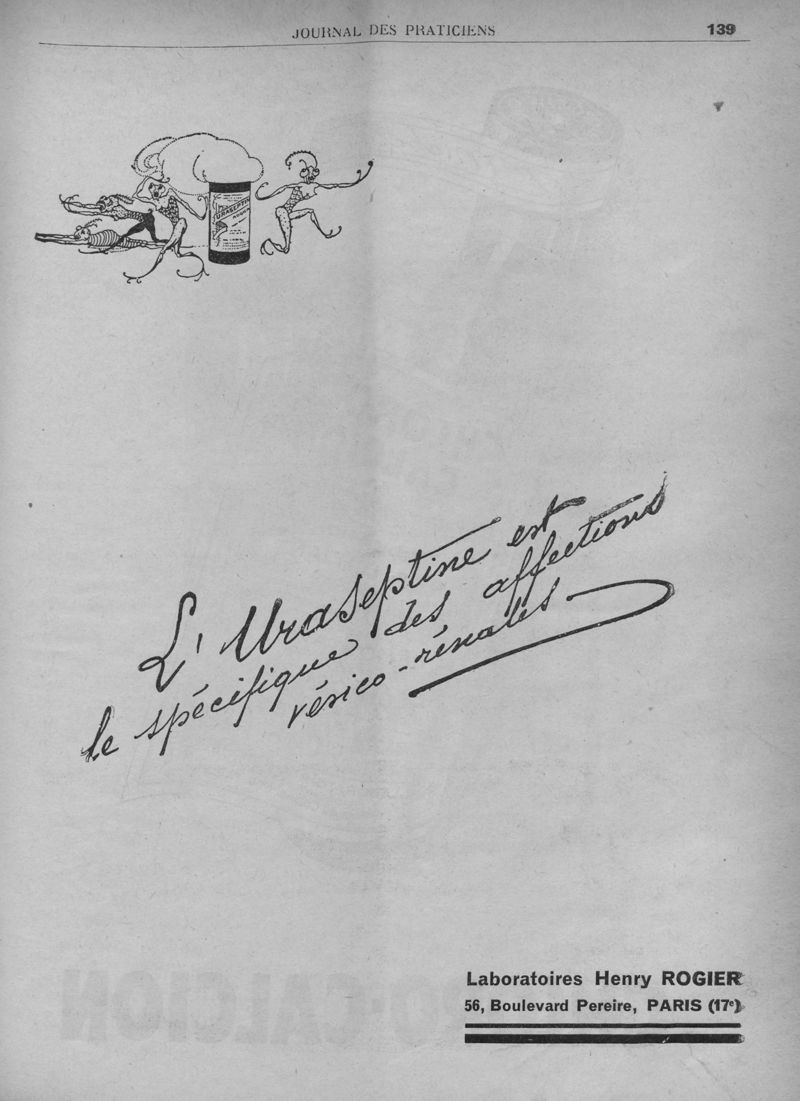 JOURNAL DES PRATICIENS
139
URASEPTINE
ROGIER
L'Uraseptine est
le spécifique des affections
vésico-rénales
Laboratoires Henry ROGIER
56, Boulevard Pereire, PARIS (17e)